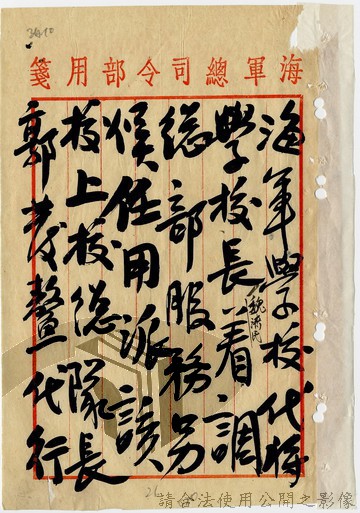 3410
箋用部令司總軍海
海軍學校代將
學校長魏濟民着調
總部服務另
候任用派該
校上校總隊長
郭發鰲代行
請合法使用公開之影像